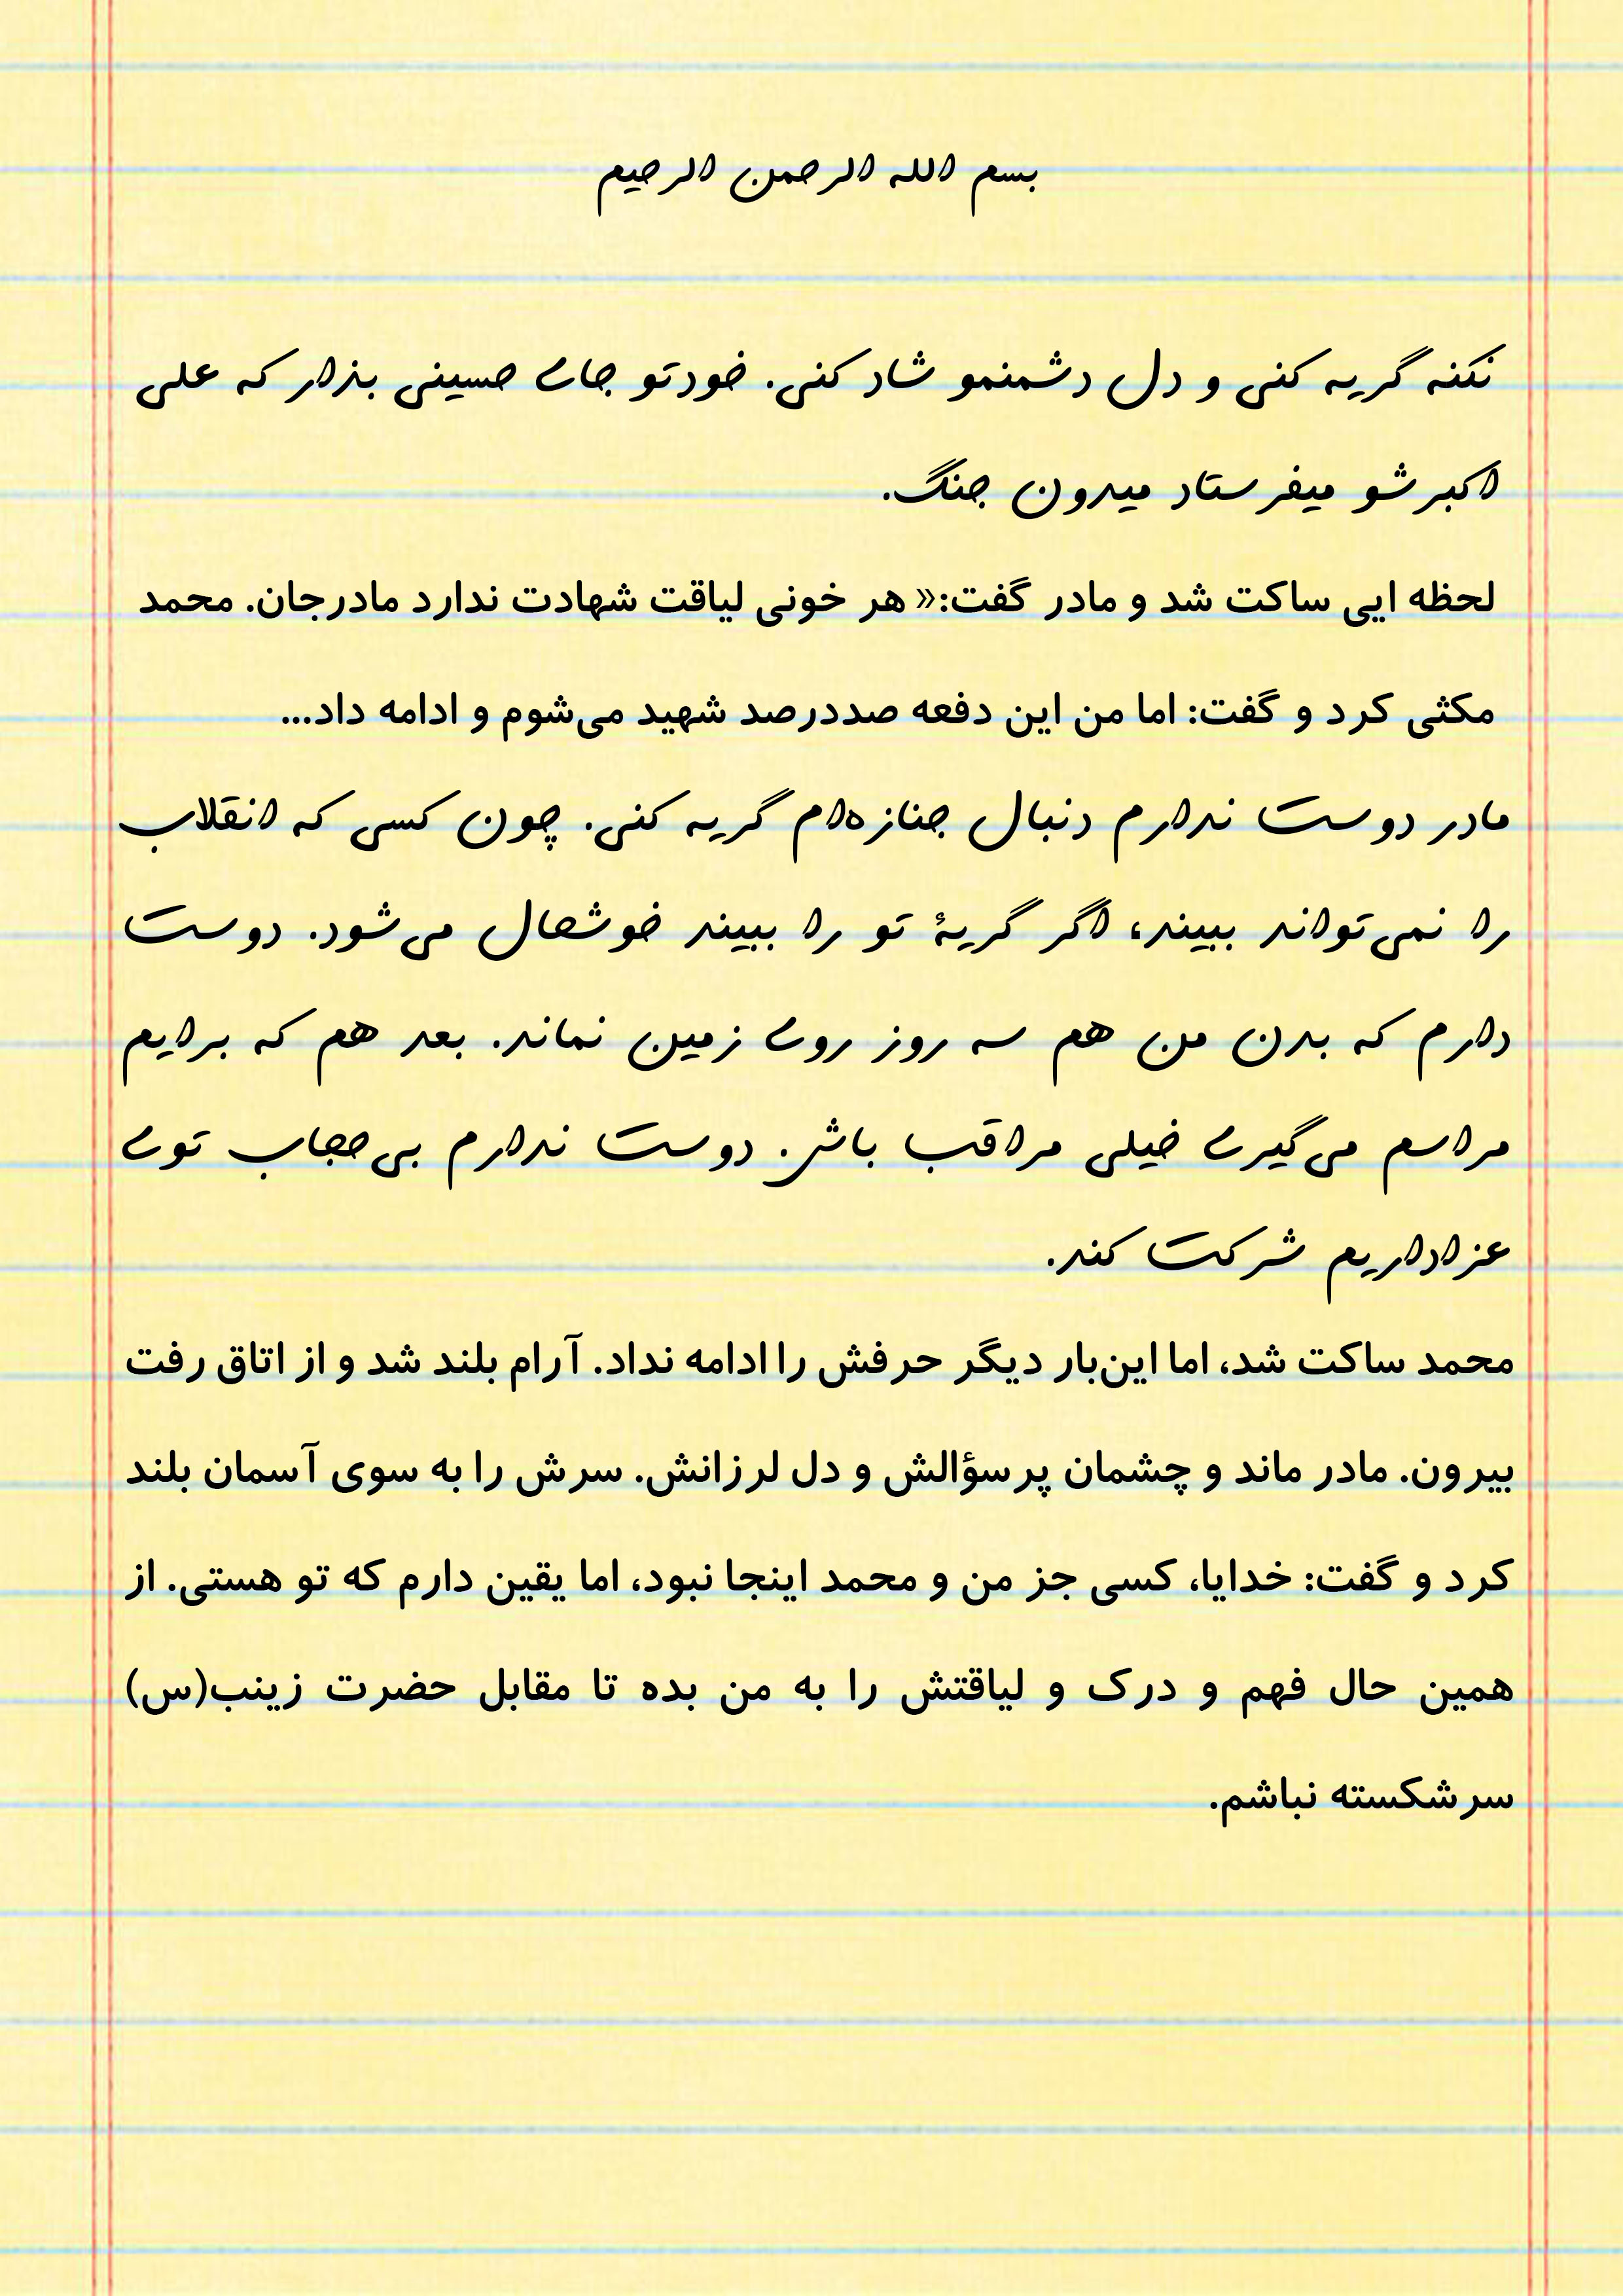 بسم الله الرحمن الرحیم
نکنه گریه کنی و دل دشمنمو شاد کنی. خودتو جای حسینی بذار که علی
اکبرشو میفرستاد میدون جنگ.
لحظه ایی ساکت شد و مادر گفت:« هر خونی لیاقت شهادت ندارد مادرجان. محمد
مکثی کرد و گفت: اما من این دفعه صددرصد شهید می‌شوم و ادامه داد...
مادر دوست ندارم دنبال جنازه‌ام گریه کنی. چون کسی که انقلاب
را نمی‌تواند ببیند، اگر گریهٔ تو را ببیند خوشحال می‌شود. دوست
دارم که بدن من هم سه روز روی زمین نماند. بعد هم که برایم
مراسم می‌گیری خیلی مراقب باش. دوست ندارم بی‌حجاب توی
عزاداریم شرکت کند.
محمد ساکت شد، اما این‌بار دیگر حرفش را ادامه نداد. آرام بلند شد و از اتاق رفت
بیرون. مادر ماند و چشمان پرسؤالش و دل لرزانش. سرش را به سوی آسمان بلند
کرد و گفت: خدایا، کسی جز من و محمد اینجا نبود، اما یقین دارم که تو هستی. از
همین حال فهم و درک و لیاقتش را به من بده تا مقابل حضرت زینب(س)
سرشکسته نباشم.